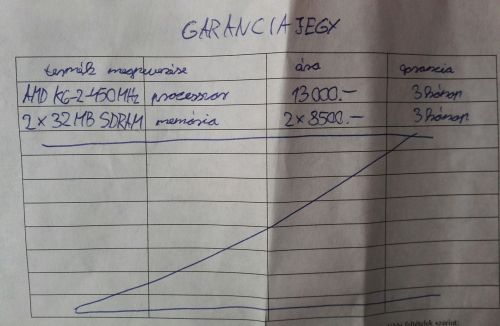 GARANCIAJEGY
termék megnevezése ára garancia
AMD K6-2-450MHz processzor 13000.- 3 hónap
2 x 32MB SDRAM memória 2 x 8500.- 3 hónap